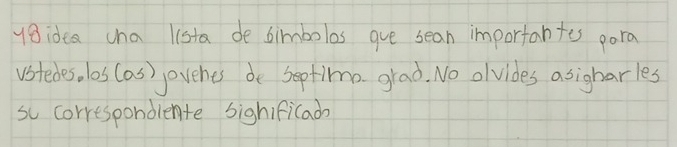 48 idea una lista de simbolos que sean importantes para
ustedes, los (as) jovenes de septimo grad. No olvides asignarles
su correspondiente significado